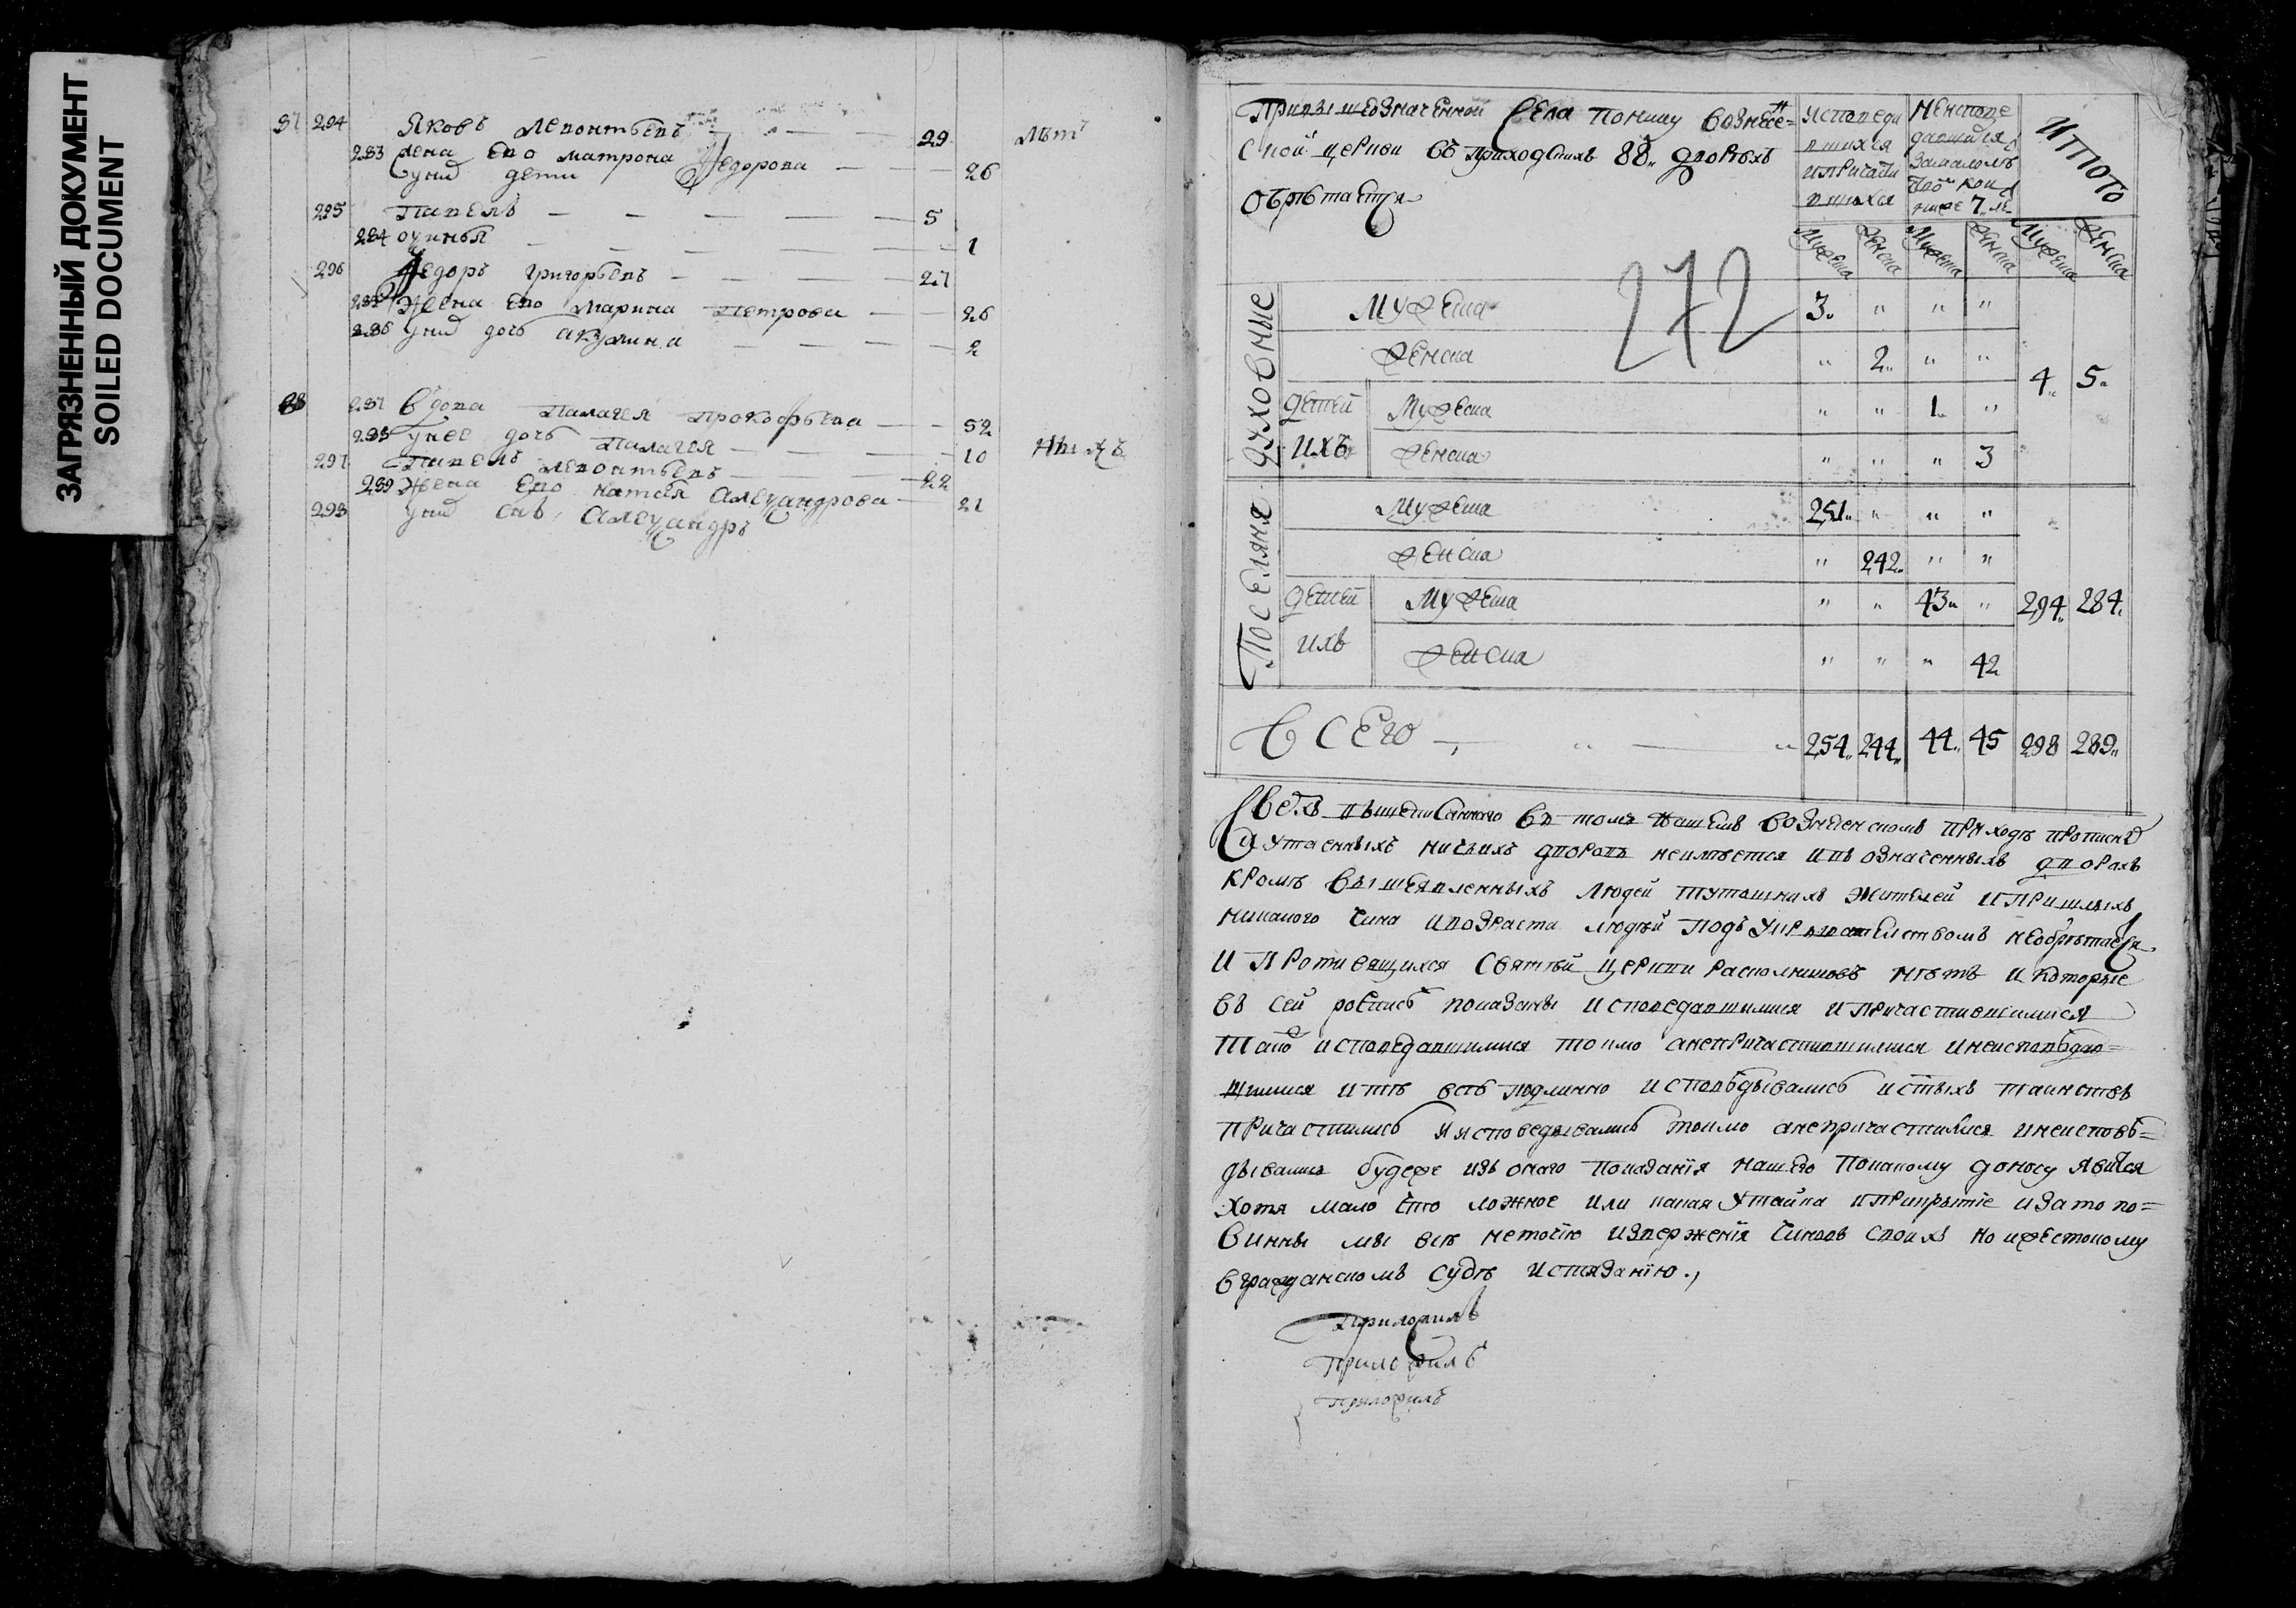 ЗАГРЯЗНЕННЫЙ ДОКУМЕНТ
SOILED DOCUMENT
87 294 Яковъ Левонтьевъ — 29 лѣтъ
283 жена ево матрона Федорова — 26
унихъ дети
295 Павелъ — 5
284 оуинья — 1
296 Федоръ григорьевъ — 27
285 Жена ево марина петрова — 26
286 унихъ дочь акулина — 2
88 287 вдова Палагея прокофьева — 52
288 унее дочь Палагея — 10
297 Павелъ левонтьевъ — 22
289 Жена ево наталья Александрова — 21
298 унихъ снъ Александръ
При вышеозначенной села Помицу вознесен=
ской церкви въ приходскихъ 88 дворѣхъ
обрѣтается
исповеди
вшихся
ипричасти
вшихся
неиспове
давшихся
замалолѣ
ниже 7 лѣ
ИТОГО
мужеска женска мужеска женска мужеска женска
272
Духовные
Мужеска 3 " " "
женска " 2 " " 4 5
детей ихъ Мужеска " " 1 "
женска " " " 3
Поселяня
Мужеска 251 " " "
женска " 242 " "
детей ихъ мужеска " " 43 " 294 284
женска " " " 42
Всего — " — " 254 244 44 45 298 289
Сверхъ вышеписаннаго въ томъ нашемъ вознесенскомъ приходѣ прописныхъ
и утаенныхъ ничьихъ дворовъ неимѣется ивъ означенныхъ дворахъ
кромѣ вышеявленныхъ людей тутошнихъ жителей ипришлыхъ
никакого чина ивозраста людѣй подъ укрывательствомъ необрѣтается
и противящихся святѣй церкви раскольниковъ нѣтъ и которые
въ сей росписѣ показаны исповедавшимися ипричастившимися
тако исповедавшимися токмо анепричастившимися инеисповѣдав=
шимися итѣ всѣ подлинно исповѣдывались истыхъ таинствъ
причастились и исповедывались токмо анепричастились инеисповѣ=
дывались буде же изъ онаго показанія нашего покакому доносу явится
хотя мало что ложное или какая утайка иприкрытіе иза то по=
винны мы всѣ неточію изверженія чиновъ своихъ но ижестокому
вгражданскомъ судѣ истязанію.,
Приложилъ
Приложилъ
Приложилъ